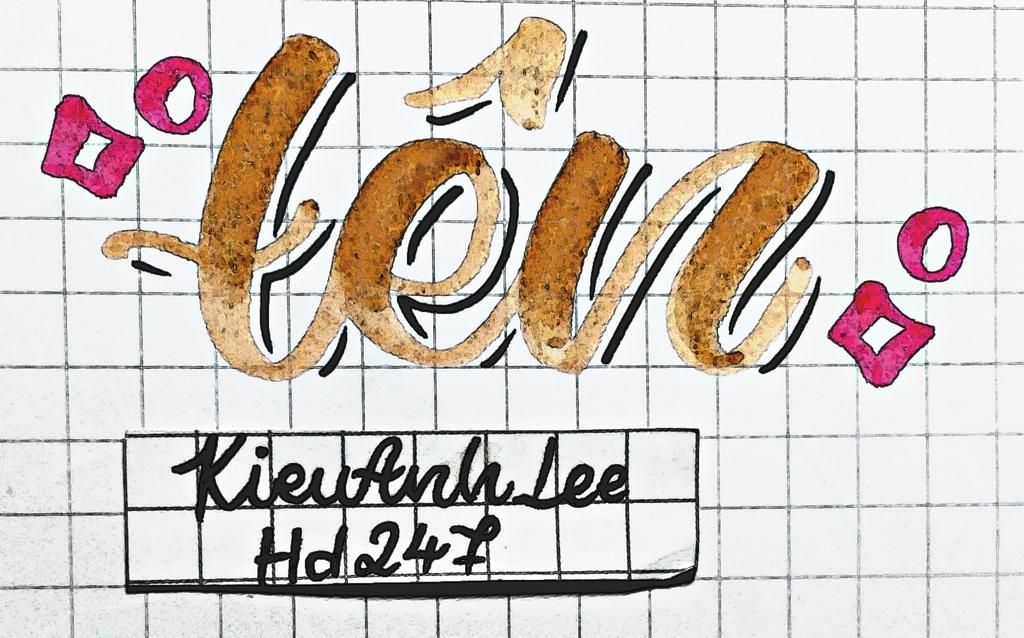 tên
KieuAnh Lee
Hd247